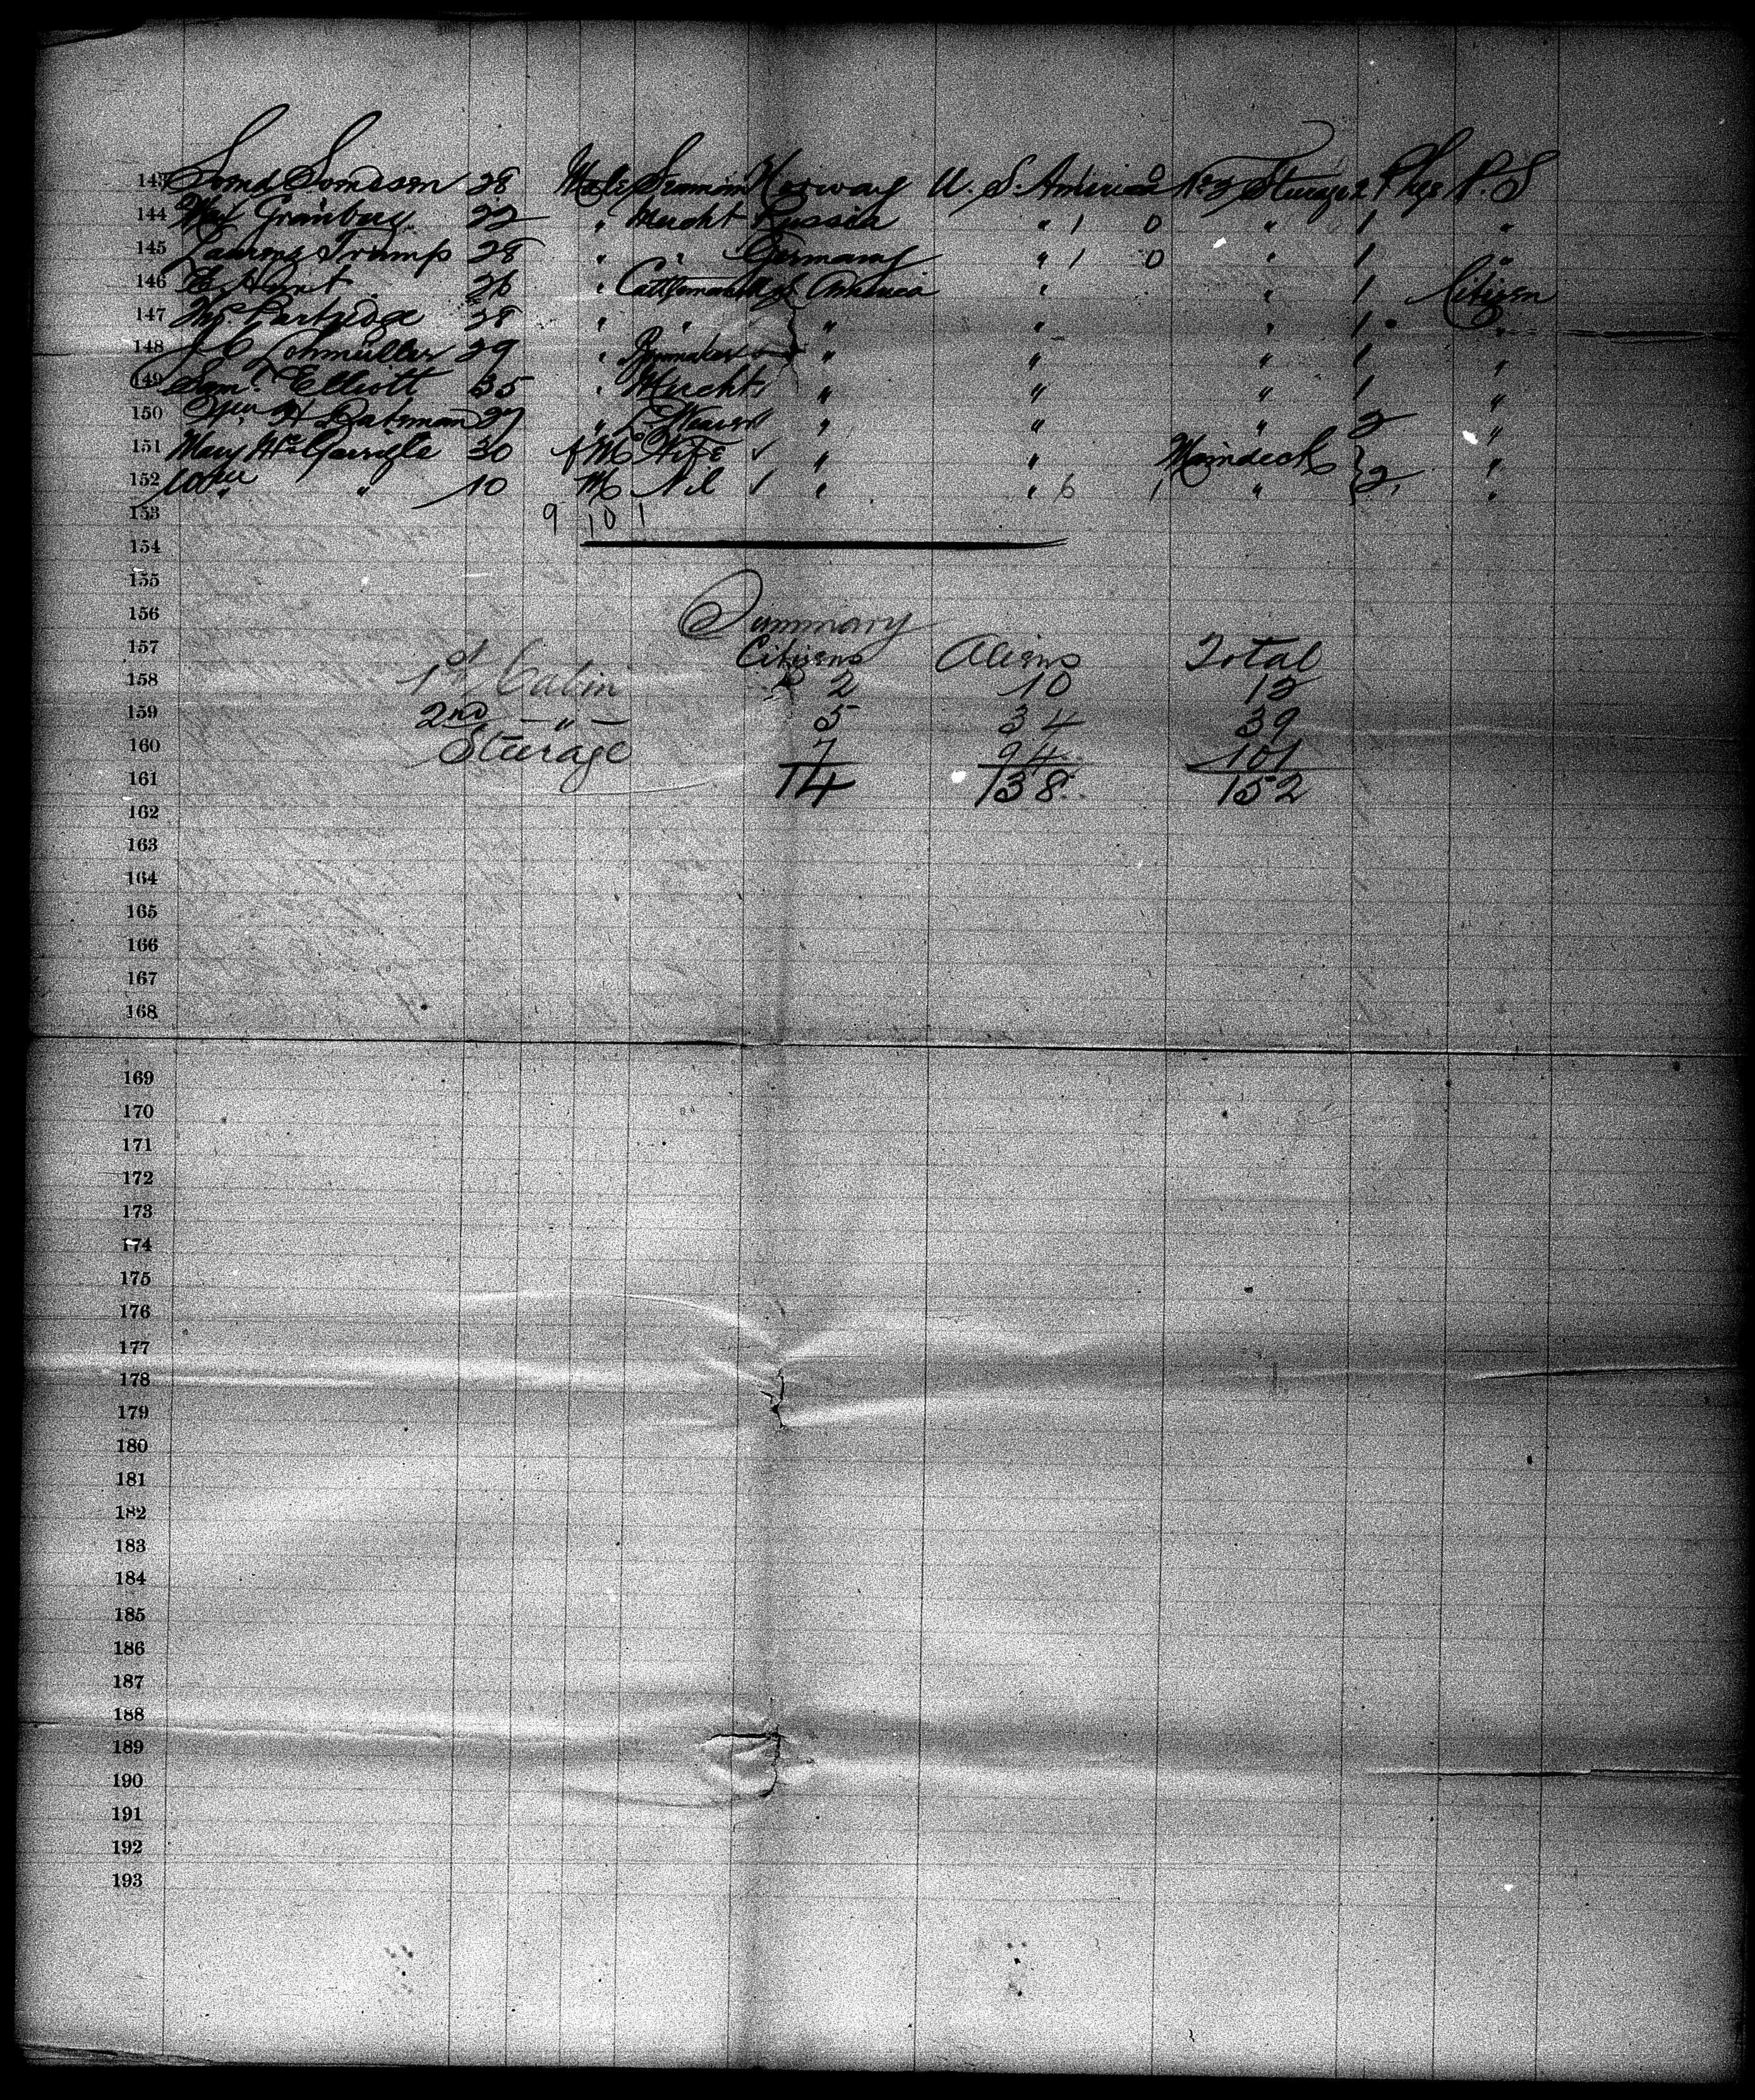 143 Sond Sondsen 28 Male Seaman Norway U. S. America No 2 Steerage 2 Pkgs P. S
144 Grünberg 22 " Mercht Russia " 1 0 " 1 "
145 Trump 28 " " Germany " 1 0 " 1 "
146 Hunt 26 " Cattleman America " " 1 Citizen
147 Partridge 28 " " " " " 1 "
148 J C Lohmüller 29 " " " " 1 "
149 Saml Elliott 35 " Mercht " " " 1 "
150 H Bateman 27 " " " " 2 "
151 Mary McGarrigle 30 f M Wife ✓ " " Maindeck } "
152 " 10 M Nil ✓ " " 6 1 " } 2 "
153 9 10 1
154
155
156 Summary
157 Citizens Aliens Total
158 1st Cabin 2 10 12
159 2nd — " — 5 34 39
160 Steerage 7 94 101
161 14 138 152
162
163
164
165
166
167
168
169
170
171
172
173
174
175
176
177
178
179
180
181
182
183
184
185
186
187
188
189
190
191
192
193